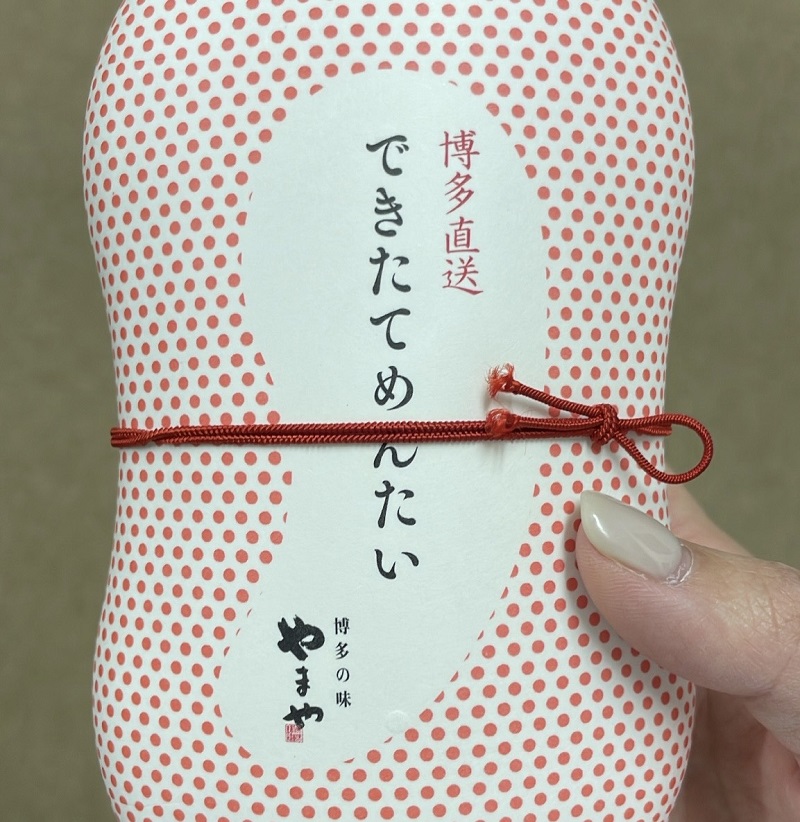 博多直送
できたてめんたい
博多の味
やまや